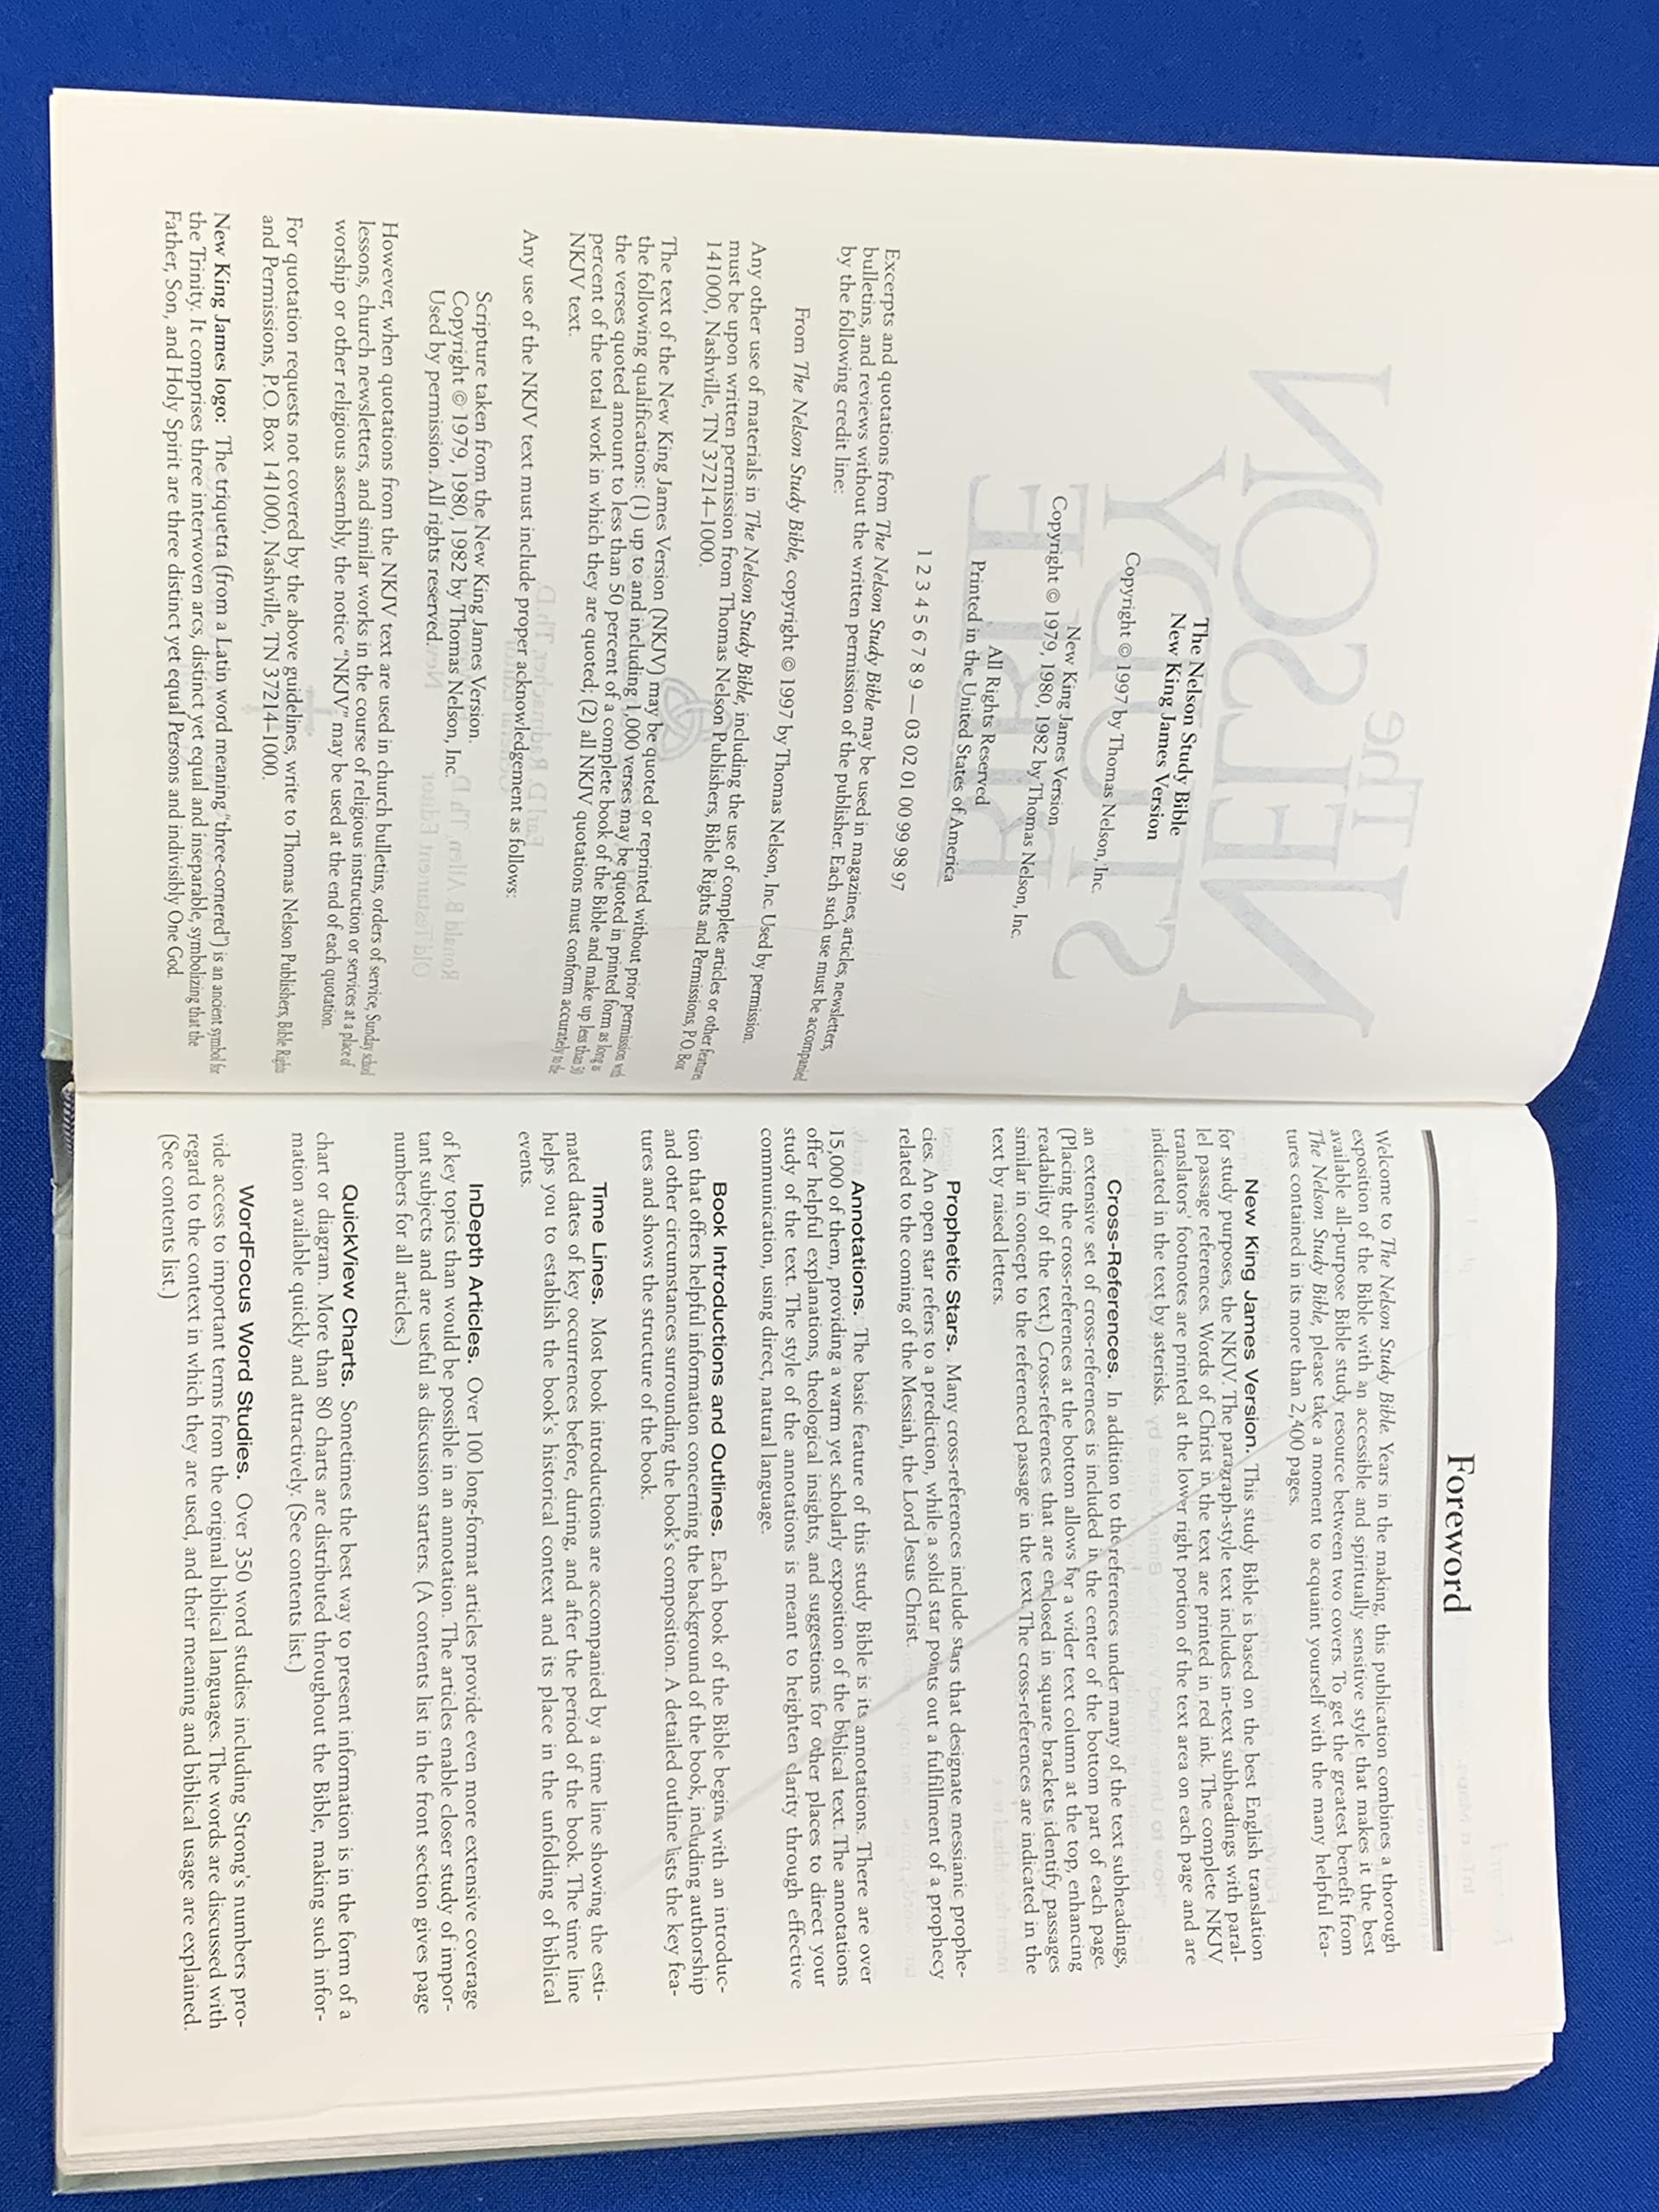 The Nelson Study Bible
New King James Version
Copyright © 1997 by Thomas Nelson, Inc.
New King James Version
Copyright © 1979, 1980, 1982 by Thomas Nelson, Inc.
All Rights Reserved
Printed in the United States of America
1 2 3 4 5 6 7 8 9 — 03 02 01 00 99 98 97
Excerpts and quotations from The Nelson Study Bible may be used in magazines, articles, newsletters,
bulletins, and reviews without the written permission of the publisher. Each such use must be accompanied
by the following credit line:
From The Nelson Study Bible, copyright © 1997 by Thomas Nelson, Inc. Used by permission.
Any other use of materials in The Nelson Study Bible, including the use of complete articles or other features
must be upon written permission from Thomas Nelson Publishers, Bible Rights and Permissions, P.O. Box
141000, Nashville, TN 37214–1000.
The text of the New King James Version (NKJV) may be quoted or reprinted without prior permission with
the following qualifications: (1) up to and including 1,000 verses may be quoted in printed form as long as
the verses quoted amount to less than 50 percent of a complete book of the Bible and make up less than 50
percent of the total work in which they are quoted; (2) all NKJV quotations must conform accurately to the
NKJV text.
Any use of the NKJV text must include proper acknowledgement as follows:
Scripture taken from the New King James Version.
Copyright © 1979, 1980, 1982 by Thomas Nelson, Inc.
Used by permission. All rights reserved.
However, when quotations from the NKJV text are used in church bulletins, orders of service, Sunday school
lessons, church newsletters, and similar works in the course of religious instruction or services at a place of
worship or other religious assembly, the notice “NKJV” may be used at the end of each quotation.
For quotation requests not covered by the above guidelines, write to Thomas Nelson Publishers, Bible Rights
and Permissions, P.O. Box 141000, Nashville, TN 37214–1000.
New King James logo: The triquetra (from a Latin word meaning “three-cornered”) is an ancient symbol for
the Trinity. It comprises three interwoven arcs, distinct yet equal and inseparable, symbolizing that the
Father, Son, and Holy Spirit are three distinct yet equal Persons and indivisibly One God.
Foreword
Welcome to The Nelson Study Bible. Years in the making, this publication combines a thorough
exposition of the Bible with an accessible and spiritually sensitive style that makes it the best
available all-purpose Bible study resource between two covers. To get the greatest benefit from
The Nelson Study Bible, please take a moment to acquaint yourself with the many helpful fea-
tures contained in its more than 2,400 pages.
New King James Version. This study Bible is based on the best English translation
for study purposes, the NKJV. The paragraph-style text includes in-text subheadings with paral-
lel passage references. Words of Christ in the text are printed in red ink. The complete NKJV
translators’ footnotes are printed at the lower right portion of the text area on each page and are
indicated in the text by asterisks.
Cross-References. In addition to the references under many of the text subheadings,
an extensive set of cross-references is included in the center of the bottom part of each page.
(Placing the cross-references at the bottom allows for a wider text column at the top, enhancing
readability of the text.) Cross-references that are enclosed in square brackets identify passages
similar in concept to the referenced passage in the text. The cross-references are indicated in the
text by raised letters.
Prophetic Stars. Many cross-references include stars that designate messianic prophe-
cies. An open star refers to a prediction, while a solid star points out a fulfillment of a prophecy
related to the coming of the Messiah, the Lord Jesus Christ.
Annotations. The basic feature of this study Bible is its annotations. There are over
15,000 of them, providing a warm yet scholarly exposition of the biblical text. The annotations
offer helpful explanations, theological insights, and suggestions for other places to direct your
study of the text. The style of the annotations is meant to heighten clarity through effective
communication, using direct, natural language.
Book Introductions and Outlines. Each book of the Bible begins with an introduc-
tion that offers helpful information concerning the background of the book, including authorship
and other circumstances surrounding the book’s composition. A detailed outline lists the key fea-
tures and shows the structure of the book.
Time Lines. Most book introductions are accompanied by a time line showing the esti-
mated dates of key occurrences before, during, and after the period of the book. The time line
helps you to establish the book’s historical context and its place in the unfolding of biblical
events.
InDepth Articles. Over 100 long-format articles provide even more extensive coverage
of key topics than would be possible in an annotation. The articles enable closer study of impor-
tant subjects and are useful as discussion starters. (A contents list in the front section gives page
numbers for all articles.)
QuickView Charts. Sometimes the best way to present information is in the form of a
chart or diagram. More than 80 charts are distributed throughout the Bible, making such infor-
mation available quickly and attractively. (See contents list.)
WordFocus Word Studies. Over 350 word studies including Strong’s numbers pro-
vide access to important terms from the original biblical languages. The words are discussed with
regard to the context in which they are used, and their meaning and biblical usage are explained.
(See contents list.)